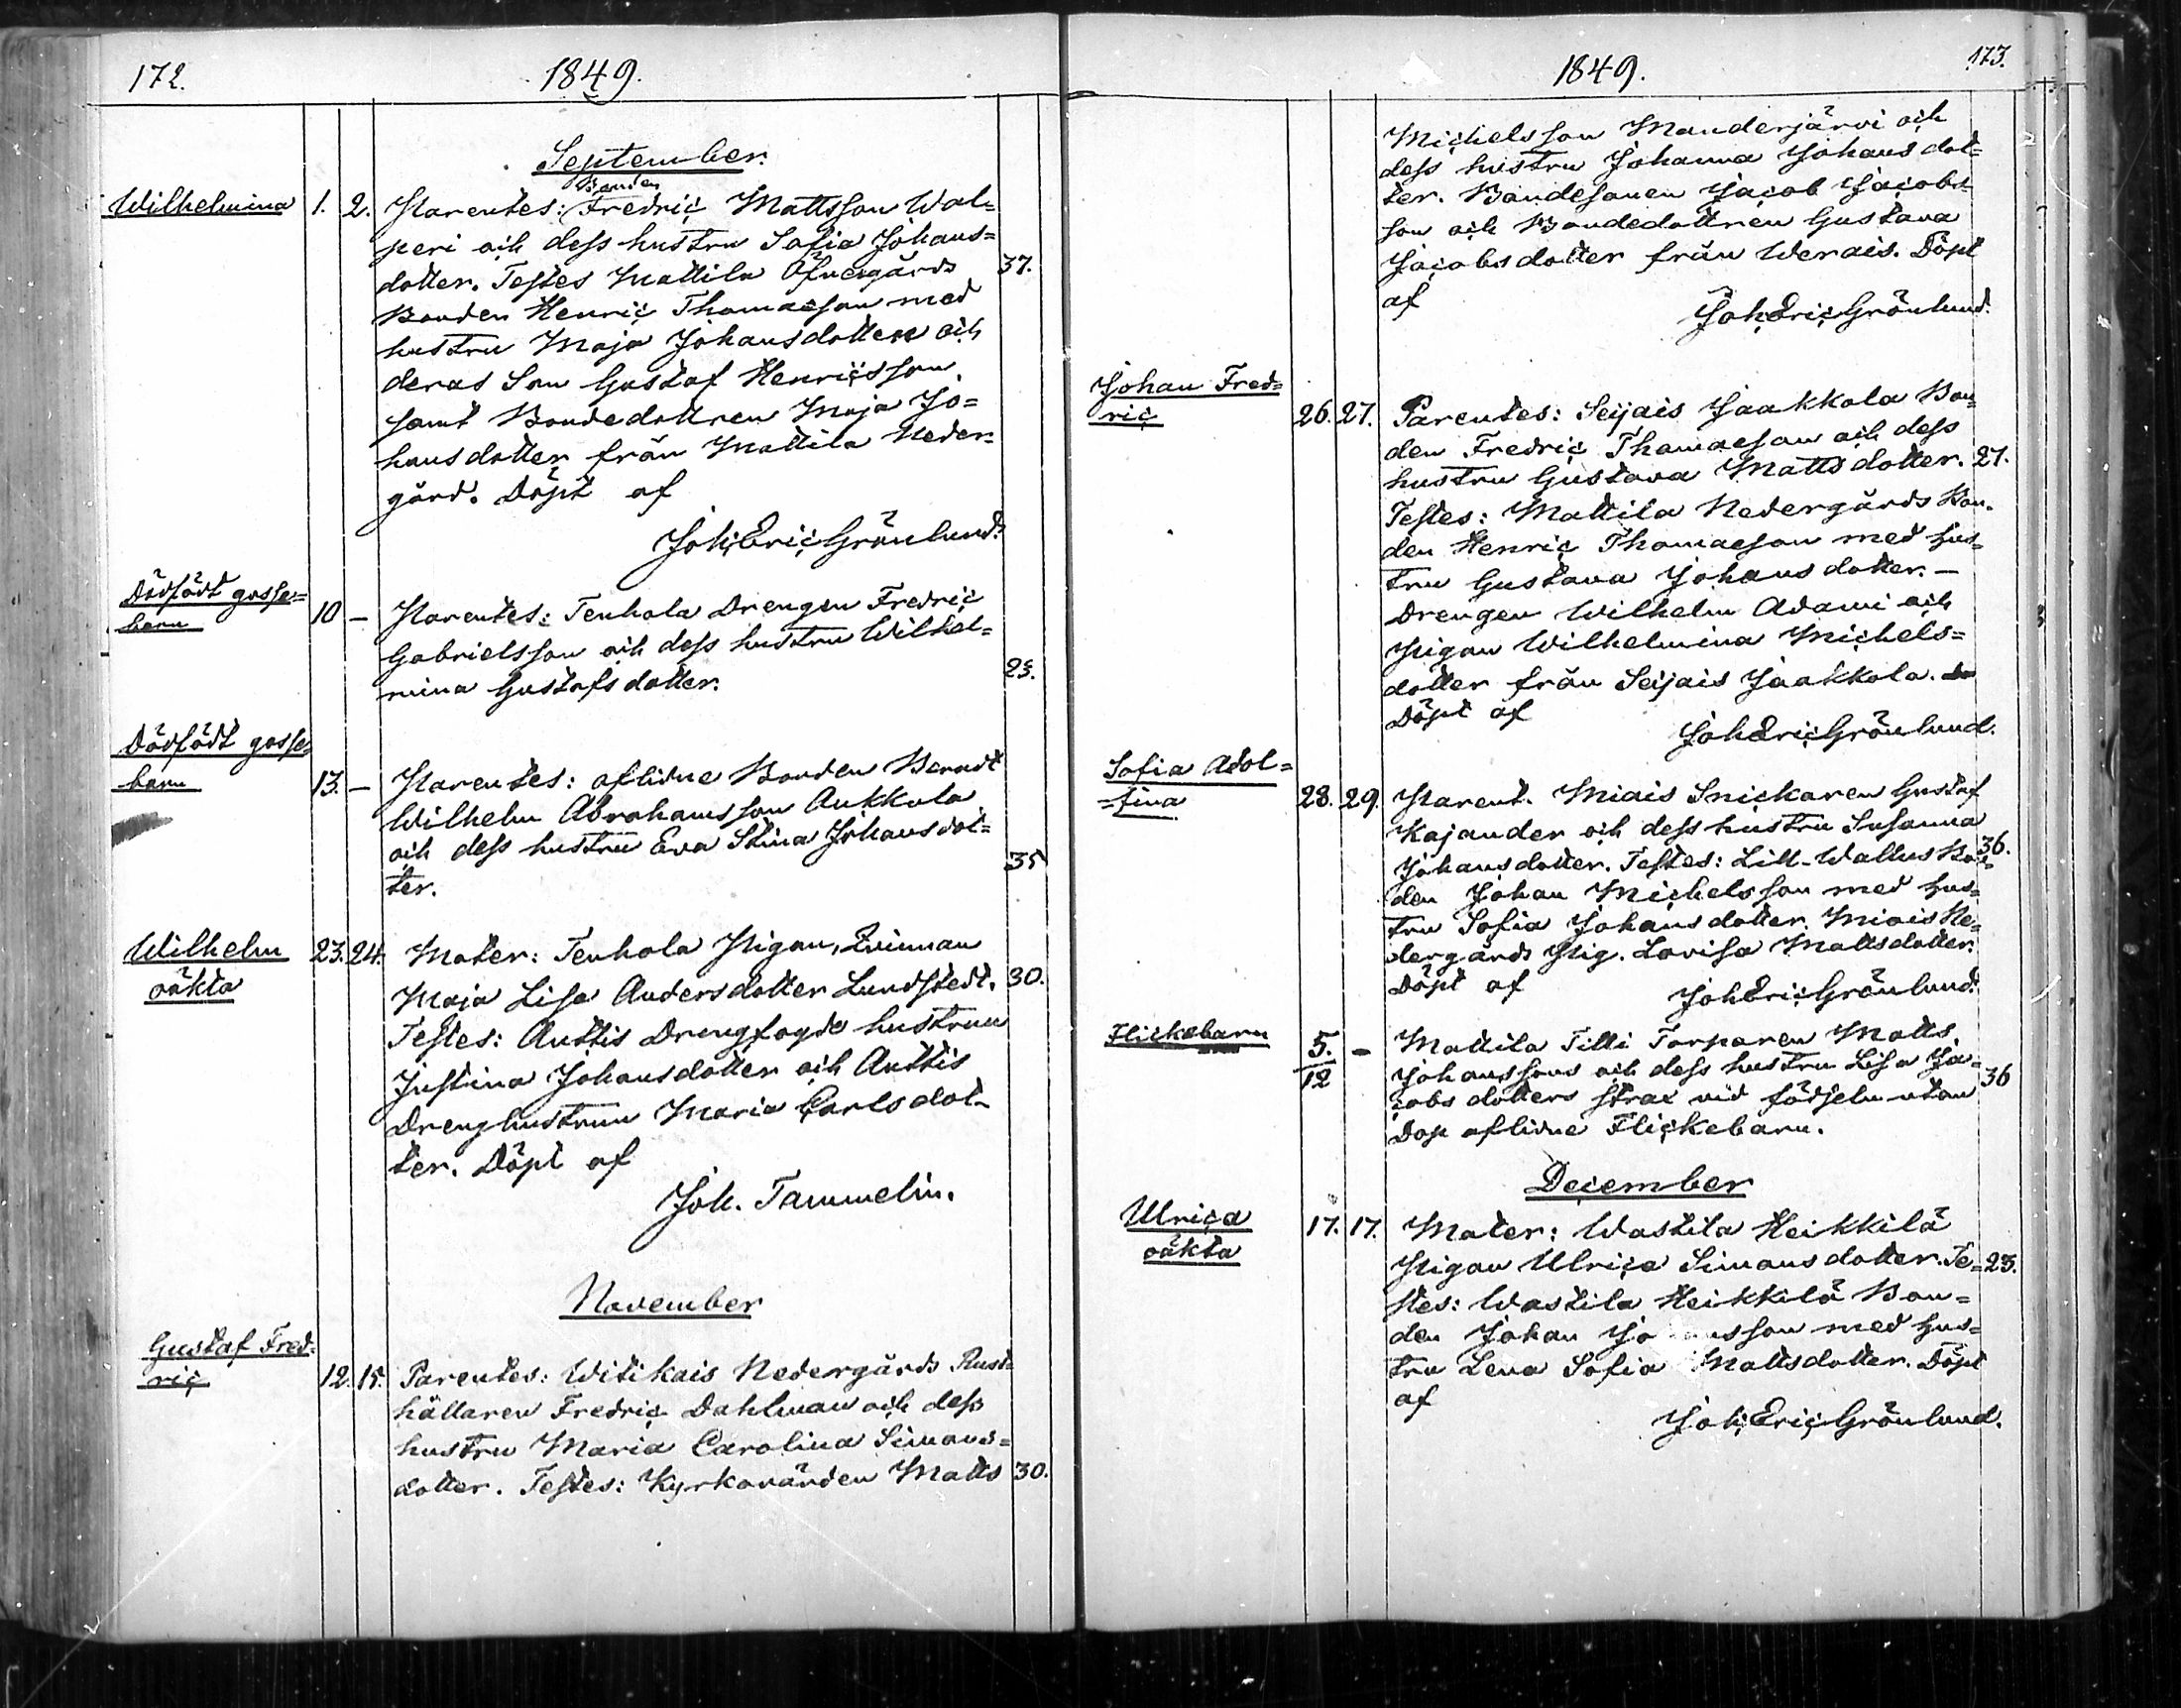 172.
1849.
September.
Wilhelmina 1. 2. Parentes: Bonden Fredric Mattsson Wal=
peri och dess hustru Sofia Johans=
dotter. Testes Mattila Öfvergårds 37.
Bonden Henric Thomasson med
hustru Maja Johansdotter och
deras Son Gustaf Henricsson,
samt Bondedottren Maja Jo=
hansdotter från Mattila Neder=
gård. Döpt af
Joh: Eric Grönlund.
Dödfödt gosse=
barn 10 — Parentes: Tenhola Drengen Fredric
Gabrielsson och dess hustru Wilhel=
mina Gustafsdotter.
Dödfödt gosse=
barn 13. — Parentes: aflidne Bonden Berndt
Wilhelm Abrahamsson Aukkola
och dess hustru Eva Stina Johansdot= 35
ter.
Wilhelm 23. 24. Mater: Tenhola Pigan, Qvinnan
oäkta Maja Lisa Andersdotter Lundstedt. 30.
Testes: Anttis Drengfogde hustrun
Justina Johansdotter och Anttis
Drenghustrun Maria Carlsdot-
ter. Döpt af
Joh. Tammelin.
November
Gustaf Fred=
ric 12. 15. Parentes: Witikais Nedergårds Rust=
hållaren Fredric Dahlman och dess
hustru Maria Carolina Simons=
dotter. Testes: Kyrkovärden Matts 30.
1849.
173.
Michelsson Manderjärvi och
dess hustru Johanna Johansdot=
ter. Bondesonen Jacob Jacobs
son och Bondedottren Gustava
Jacobsdotter från Werais. Döpt
af
Joh Eric Grönlund.
Johan Fred=
ric 26. 27. Parentes: Seijais Jaakkola Bon=
den Fredric Thomasson och dess
hustru Gustava Mattsdotter. 27.
Testes: Mattila Nedergårds Bon=
den Henric Thomasson med hus=
tru Gustava Johansdotter. —
Drengen Wilhelm Adami och
Pigan Wilhelmina Michels=
dotter från Seijais Jaakkola.
Döpt af
Joh Eric Grönlund.
Sofia Adol=
=fina 28. 29. Parent. Miais Snickaren Gustaf
Kajander och dess hustru Susanna
Johansdotter. Testes: Lill-Wallus Bon= 36.
den Johan Michelsson med hus=
tru Sofia Johansdotter. Miais Ne=
dergårds Pig. Lovisa Mattsdotter.
Döpt af
Joh Eric Grönlund.
Flickebarn 5. 12 — Mattila Tilli Torparen Matts
Johanssons och dess hustru Lisa Ja=
cobsdotters strax vid födseln utan 36
Dop aflidne Flickebarn.
December
Ulrica 17. 17. Mater: Wastila Heikkilä
oäkta Pigan Ulrica Simonsdotter. Te= 23.
stes: Wastila Heikkilä Bon=
den Johan Jo nsson med hus=
tru Lena Sofia Mattsdotter. Döpt
af
Joh: Eric Grönlund.